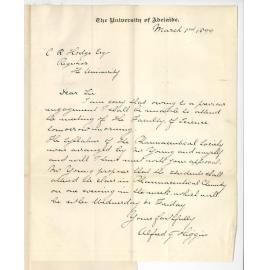 The University of Adelaide.
March 1st 1899
C. R. Hodge Esq
Registrar
The University
Dear Sir
I am sorry that owing to a previous
engagement I shall be unable to attend
the meeting of the Faculty of Science
tomorrow morning.
The Syllabus of the Pharmaceutical Society
was arranged by Mr Young and myself
and will I trust meet with your approval.
Mr Young proposes that the students shall
attend the class in Pharmaceutical Chemistry
on one evening in the week which will
be either Wednesday or Friday
Yours faithfully
Alfred J Higgin